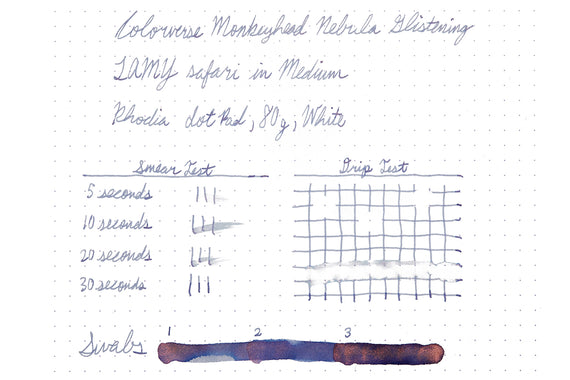 Colorverse Monkeyhead Nebula Glistening
LAMY safari in Medium
Rhodia dot Pad, 80g, White
Smear Test
Drip Test
5 seconds
10 seconds
20 seconds
30 seconds
Swabs
1 2 3